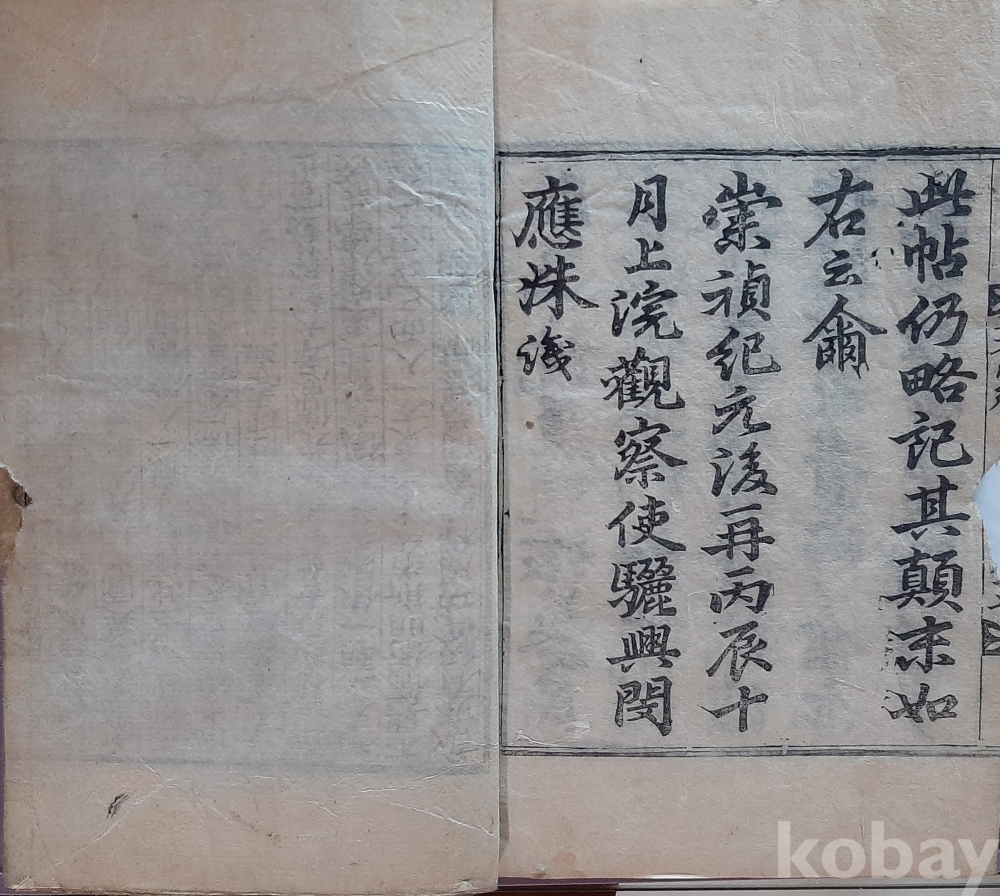 此帖仍略記其顛末如
右云爾
崇禎紀元後再丙辰十
月上浣觀察使驪興閔
應洙
kobay